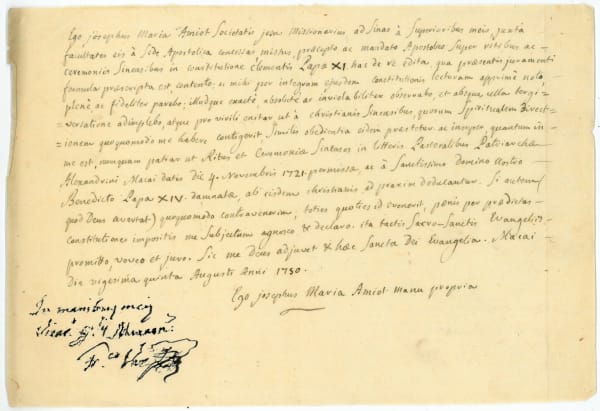 Ego josephus Maria Amiot Societatis jesu Missionarius ad Sinas à Superioribus meis, juxta
facultates eis à Sede Apostolica concessas missus, præcepto ac mandato Apostolico super ritibus ac
cæremoniis Sinensibus in constitutione Clementis Papæ XI hac de re edita, qua præsentis juramenti
formula præscripta est, contento, ac mihi per integram ejusdem constitutionis lecturam apprimè noto,
plenè ac fideliter parebo, illudque exactè, absolutè ac inviolabiliter observabo, et absque ulla tergi=
=versatione adimplebo, atque pro virili enitar ut à christianis Sinensibus, quorum Spiritualem direct=
=ionem quoquomodo me habere contigerit, Similis obedientia eidem præstetur ac insuper, quantum in
me est, nunquam patiar ut Ritus et Ceremoniæ Sinenses in Litteris Pastoralibus Patriarchæ
Alexandrini Macai datis die 4. Novembris 1721. permissæ, ac à Sanctissimo Domino nostro
Benedicto Papa XIV. damnatæ, ab eisdem christianis ad praxim deducantur. Si autem (
quod Deus avertat) quoquomodo contravenerim, toties quoties id evenerit, pœnis per prædictas
constitutiones impositis me Subjectum agnosco & declaro. ita tactis Sacro-Sanctis Evangeliis
promitto, voveo et juro. Sic me Deus adjuvet & hæc Sancta Dei Evangelia. Macai
Die vigesima quinta Augusti Anni 1750.
Ego josephus Maria Amiot manu propria
In manibus meis